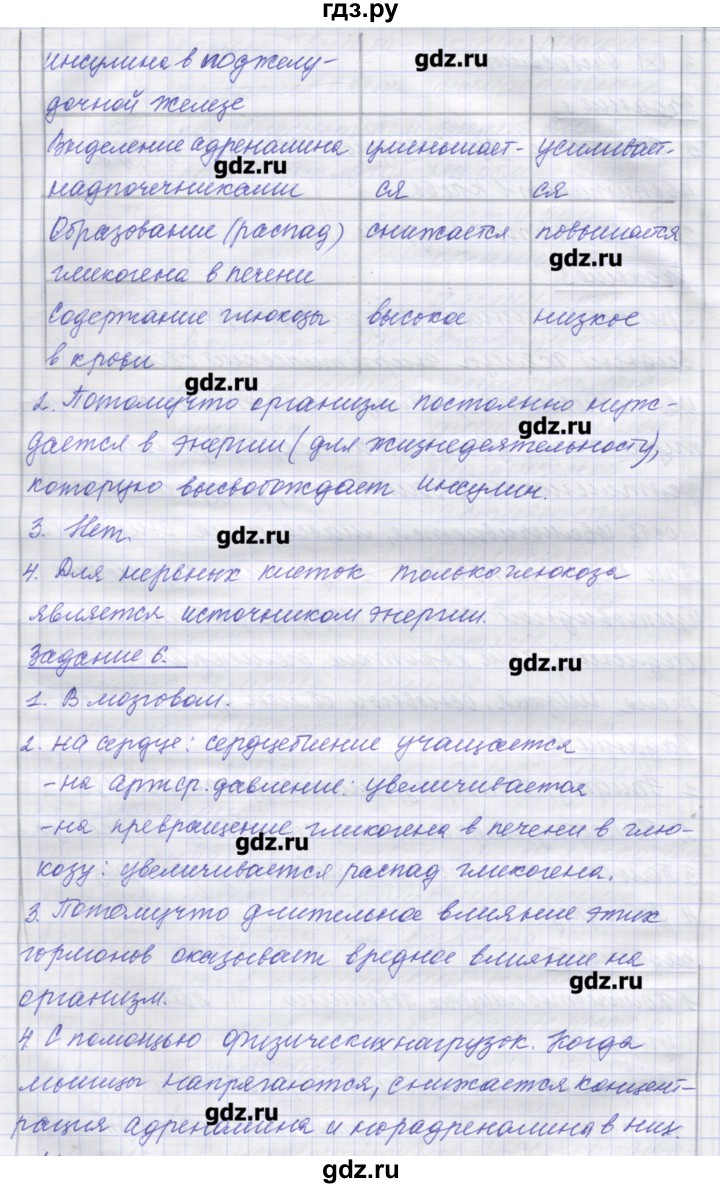 гдз.ру
инсулина в поджелу-
дочной железе
gdz.ru
Выделение адреналина уменьшает- усиливает-
gdz.ru
надпочечниками ся ся
Образование (распад) снижается повышается
gdz.ru
гликогена в печени
Содержание глюкозы высокое низкое
в крови
gdz.ru
2. Потомучто организм постоянно нуж-
gdz.ru
дается в энергии (для жизнедеятельности),
которую высвобождает инсулин.
3. Нет.
gdz.ru
4. Для нервных клеток только глюкоза
является источником энергии.
Задание 6.
gdz.ru
1. В мозговом.
2. на сердце: сердцебиение учащается
- на артер. давление: увеличивается
- на превращение гликогена в печени в глю-
gdz.ru
козу: увеличивается распад гликогена.
3. Потомучто длительное влияние этих
гормонов оказывает вредное влияние на
gdz.ru
организм.
4 С помощью физических нагрузок. Когда
мышцы напрягаются, снижается концент-
gdz.ru
рация адреналина и норадреналина в них.
gdz.ru